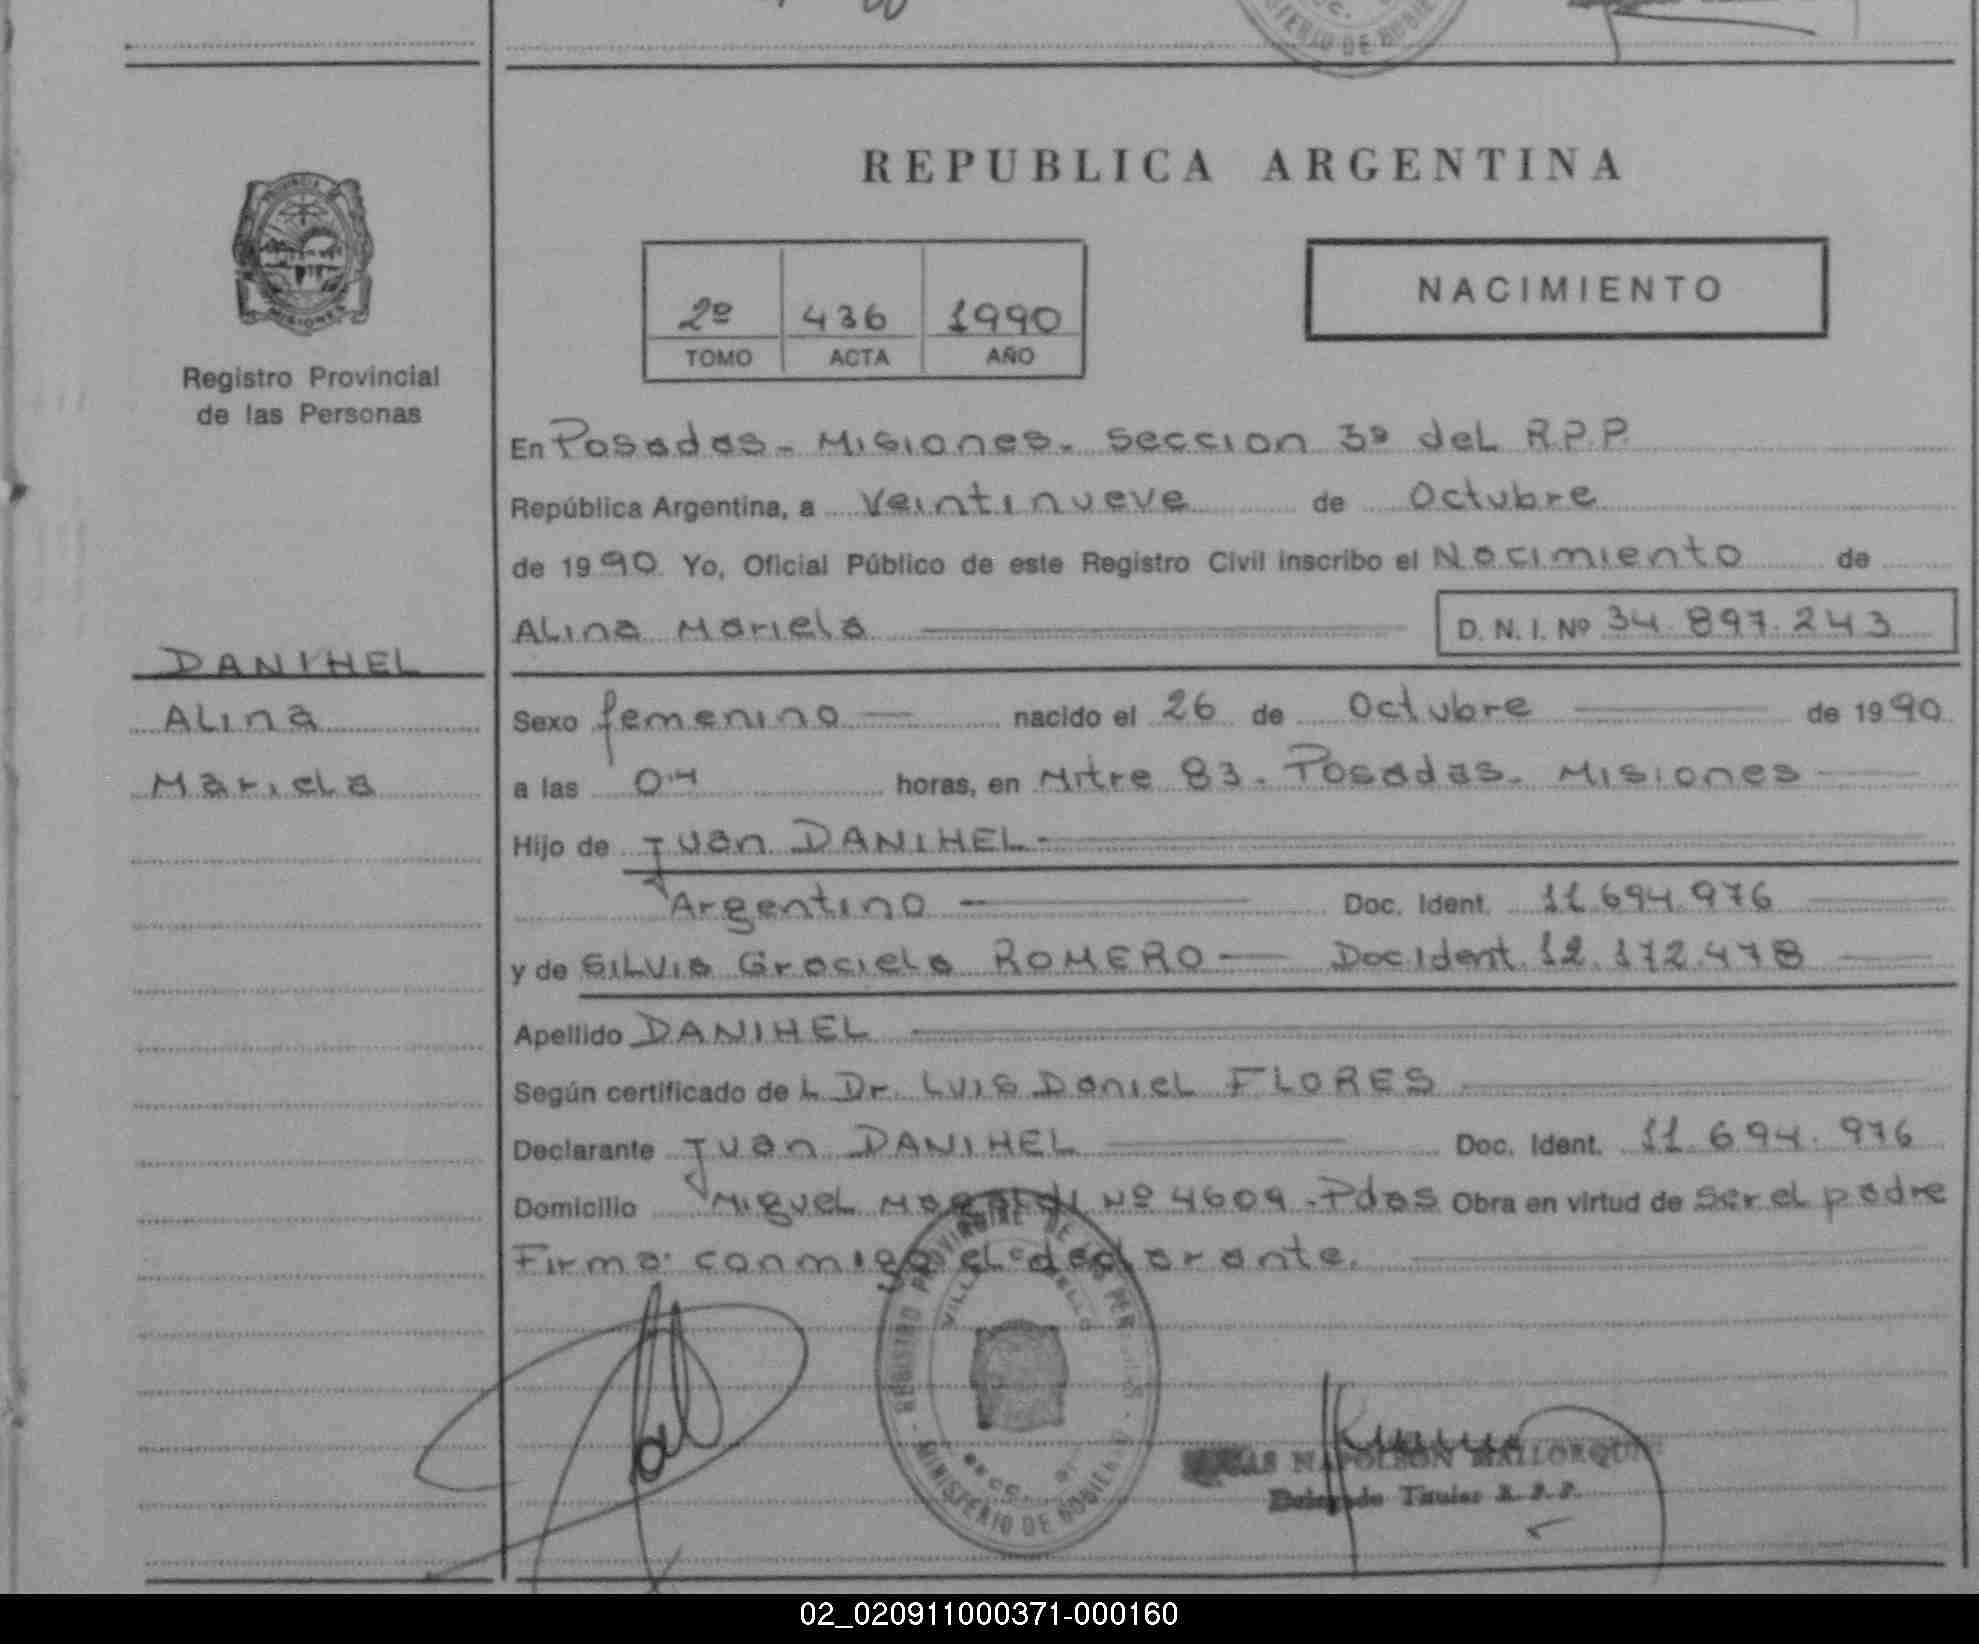 MINISTERIO DE GOBIE
REPUBLICA ARGENTINA
PROVINCIA
MISIONES
Registro Provincial
de las Personas
NACIMIENTO
2º 436 1990
TOMO ACTA AÑO
En Posadas - Misiones - Seccion 3ª del R.P.P.
República Argentina, a Veintinueve de Octubre
de 1990 Yo, Oficial Público de este Registro Civil inscribo el Nacimiento de
Alina Mariela D. N. I. Nº 34.897.243
DANIHEL
Alina
Mariela
Sexo femenino nacido el 26 de Octubre de 1990
a las 04 horas, en Mitre 83 - Posadas - Misiones
Hijo de Juan DANIHEL
Argentino Doc. Ident. 11.694.976
y de Silvia Graciela ROMERO Doc Ident. 12.172.478
Apellido DANIHEL
Según certificado del Dr. Luis Daniel FLORES
Declarante Juan DANIHEL Doc. Ident. 11.694.976
Domicilio Miguel Magaldi Nº 4609 - Pdas Obra en virtud de ser el padre
Firma conmigo el declarante.
REGISTRO PROVINCIAL DE LAS PER
VILLA
MINISTERIO DE GOBIE
NAPOLEON MALLORQUIN
Delegado Titular R. P. P.
02_020911000371-000160